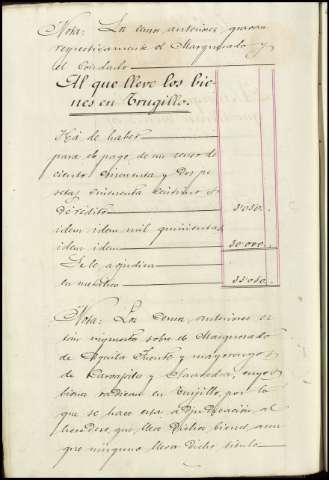 Nota: Los censos anteriores, gravan
respectivamente el Marquesado y
el Condado
Al que lleve los bie-
nes en Trugillo.
Há de haber
para el pago de un censo de
ciento cincuenta y dos pe
setas cincuenta centimos de
rédito 5050..
idem idem mil quinientas
idem idem 50.000..
Se le adjudica
en metálico 55.050..
Nota: Los censos anteriores es
tán impuestos sobre el Marquesado
de Aguila Fuente y mayorazgo
de Carvajales y Saavedra, cuyos
bienes radican en Trujillo, por lo
que se hace esta adjudicación al
heredero que lleva dichos bienes, aun
que ninguno lleva dicho título